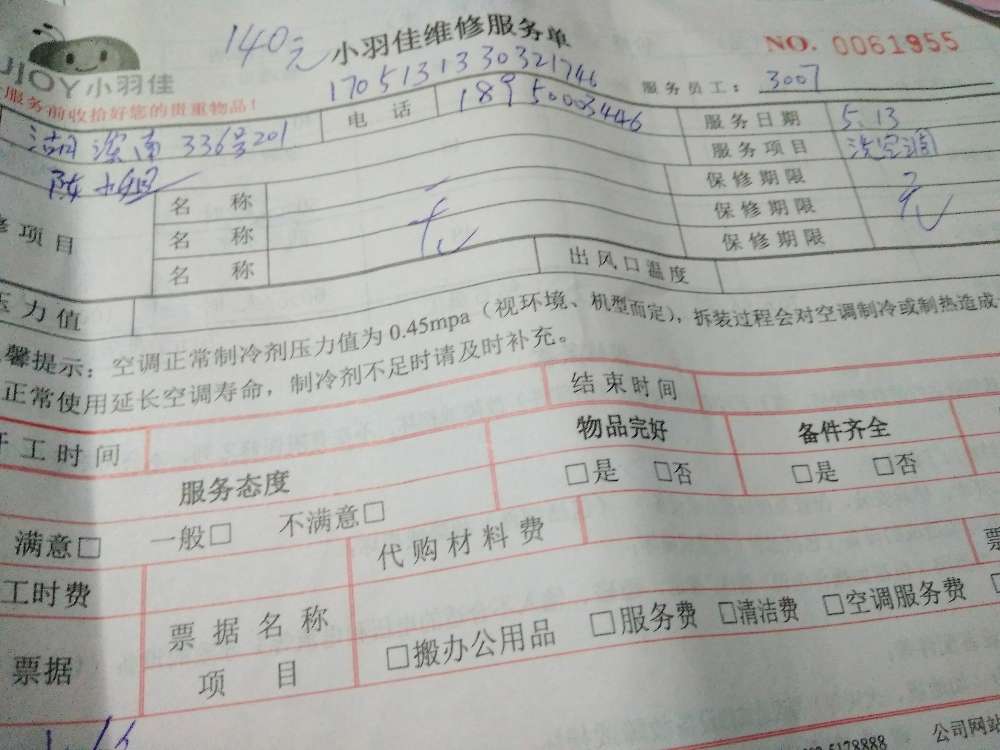 140元 小羽佳维修服务单 NO. 0061955
JIOY小羽佳
1705131330321746 服务员工: 3007
服务前收拾好您的贵重物品!
电 话 18950003446 服务日期 5.13
湖滨南336号201 服务项目 洗空调
陈小姐 名 称 保修期限
修项目 名 称 无 保修期限 无
名 称 保修期限
压力值 出风口温度
馨提示:空调正常制冷剂压力值为0.45mpa(视环境、机型而定),拆装过程会对空调制冷或制热造成
正常使用延长空调寿命,制冷剂不足时请及时补充。
开工时间 结束时间
服务态度 物品完好 备件齐全
满意□ 一般□ 不满意□ □是 □否 □是 □否
工时费 代购材料费
票据 票据名称 票
项 目 □搬办公用品 □服务费 □清洁费 □空调服务费
6178888 公司网站